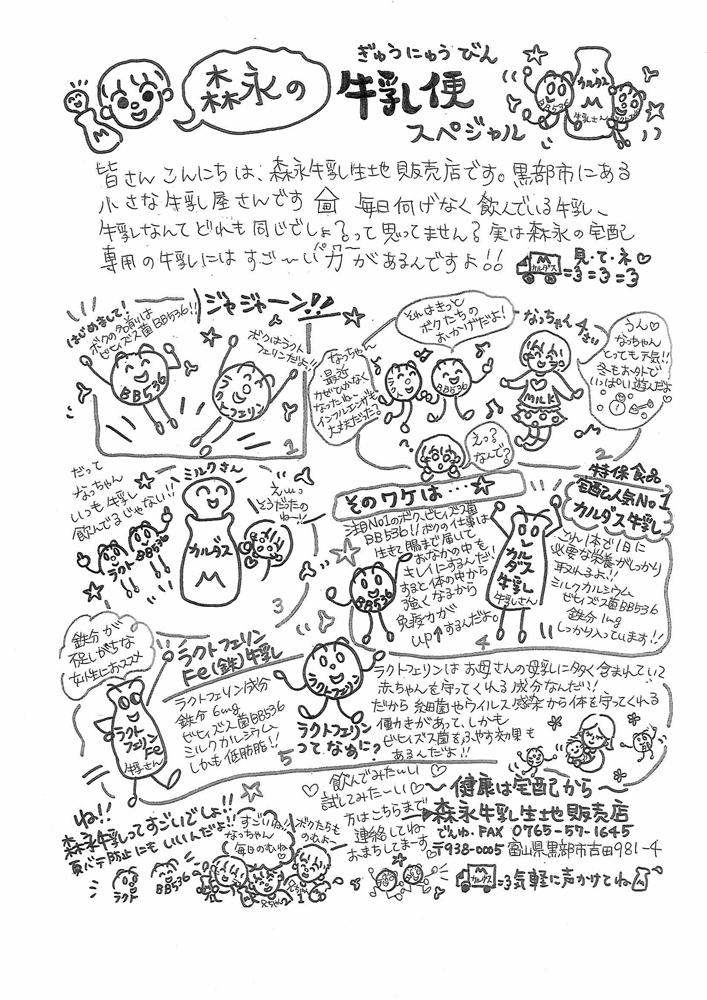 ぎゅうにゅうびん
森永の
牛乳便
スペシャル
BB536
カルダス
M
牛乳さん
M
皆さんこんにちは、森永牛乳生地販売店です。黒部市にある
小さな牛乳屋さんです 毎日何げなく飲んでいる牛乳、
牛乳なんてどれも同じでしょ？って思ってません？実は森永の宅配
専用の牛乳にはすご〜い"パワー"があるんですよ!!
見・て・ネ♡
M
カルダス
=3=3=3
はじめまして！
ボクの名前は
ビヒィズス菌BB536!!
ジャジャーン!!
ボクはラクト
フェリンだよ!!
BB536
ラクトフェリン
1
なっちゃん
最近
かぜひかなく
なったね、
インフルエンザも
大丈夫だった？
それはきっと
ボクたちの
おかげだよ！
BB536
えっ？
なんで？
なっちゃん4さい
MILK
うん♡
なっちゃん
とっても元気!!
冬もお外で
いっぱい遊んだよ
2
だって
なっちゃん
いつも牛乳
飲んでるじゃない!!
ラクト
BB536
ミルクさん
カルダス
M
えぃっ
そうだったの
ねー!!
3
そのワケは…
注目No1のボク、ビヒィズス菌
BB536!!ボクの仕事は
生きて腸まで届いて
おなかの中を
キレイにするんだ!!
すると体の中から
強くなるから
免疫力が
up↑するんだよ。
BB536
4
特保食品
宅配人気No1
カルダス牛乳
カルダス
牛乳
牛乳さん
これ1本で1日に
必要な栄養がしっかり
取れるよ!!
ミルクカルシウム
ビヒィズス菌BB536
鉄分1mg
しっかり入っています!!
鉄分が
不足しがちな
女性におススメ
ラクトフェリン
Fe(鉄)牛乳
ラクト
フェリン
Fe
牛乳さん
ラクトフェリン成分
鉄分6mg
ビヒィズス菌BB536
ミルクカルシウム
しかも低脂肪!!
5
ラクトフェリン
ラクトフェリン
ってなぁに？
ラクトフェリンはお母さんの母乳に多く含まれていて
赤ちゃんを守ってくれる成分なんだ!!
だから細菌やウイルス感染から体を守ってくれる
働きがあって、しかも
ビヒィズス菌をふやす効果も
あるんだよ!!
ね!!
森永牛乳ってすごいでしょ!!
夏バテ防止にもいいんだよ!!
ラクト
BB536
すごいね
なっちゃん
毎日のむね
ボクたちも
のむよー
♡飲んでみたーい♡
試してみたーい♡
方はこちらまで
連絡してね
おまちしてまーす
〜健康は宅配から〜
森永牛乳生地販売店
でんわ・FAX 0765-57-1645
〒938-0005 富山県黒部市吉田981-4
M
カルダス
=3気軽に声かけてね
M